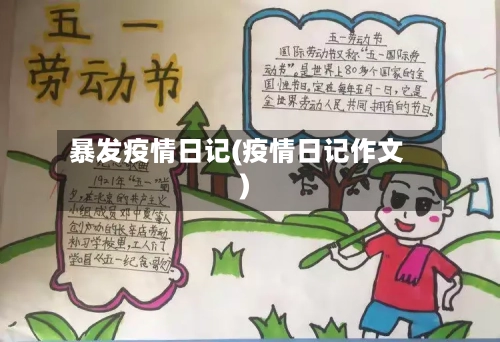 五一
劳动节
五一劳动节
国际劳动节又称“五一国际劳
动节”。是世界上80多个国家的全
国性节日。定在每年五月一日,它是
全世界劳动人民共同拥有的节日。
暴发疫情日记(疫情日记作文
)
1921年“五一”
夕,在北京的共产主义
小组成员邓中夏等人
创办的长辛店劳动
补习学校里,工人们